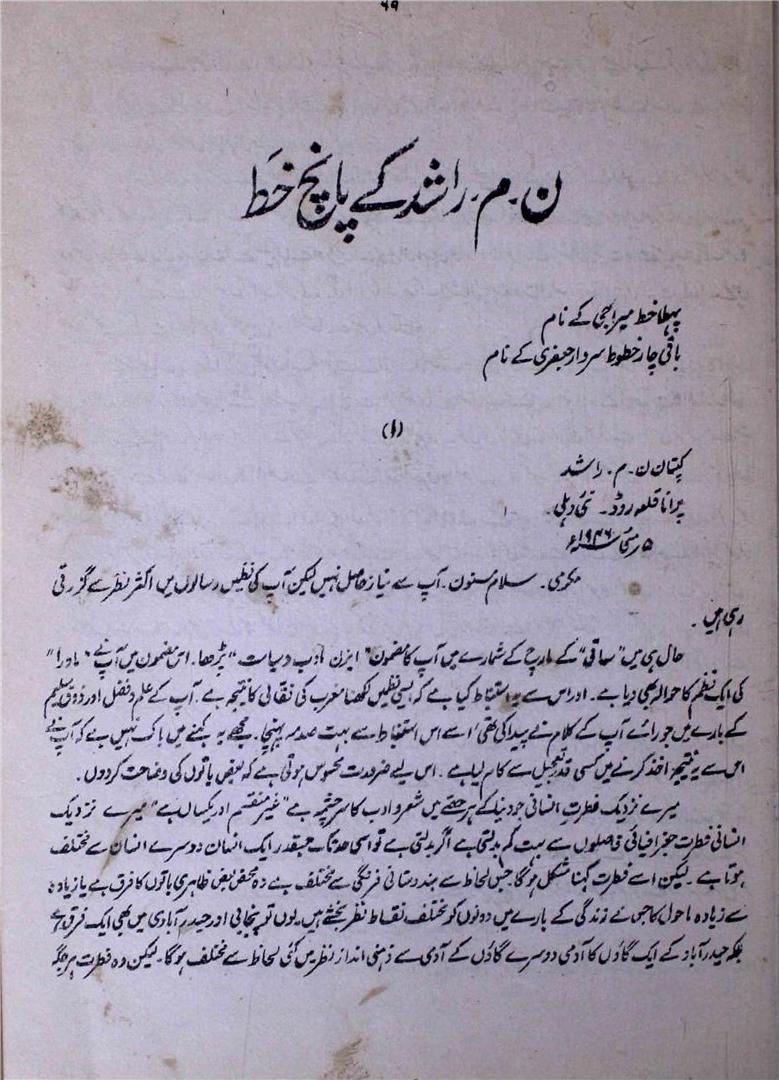 ۶۹
ن۔ م۔ راشد کے پانچ خط
پہلا خط میراجی کے نام
باقی چار خطوط سردار جعفری کے نام
(۱)
کپتان ن۔ م۔ راشد
پرانا قلعہ روڈ۔ نئی دہلی۔
۵ مئی ۱۹۴۶ء
مکرمی۔ سلام مسنون۔ آپ سے نیاز حاصل نہیں لیکن آپ کی نظمیں رسالوں میں اکثر نظر سے گزرتی
رہی ہیں۔
حال ہی میں "ساقی" کے مارچ کے شمارے میں آپ کا مضمون " ادب و سیاست " پڑھا۔ اس مضمون میں آپ نے "ماورا"
کی ایک نظم کا حوالہ بھی دیا ہے۔ اور اس سے یہ استنباط کیا ہے کہ ایسی نظمیں لکھنا مغرب کی نقالی کا نتیجہ ہے۔ آپ کے علم و فضل اور ذوق سلیم
کے بارے میں جو رائے آپ کے کلام نے پیدا کی تھی اسے اس استنباط سے بہت صدمہ پہنچا۔ مجھے یہ کہنے میں باک نہیں ہے کہ آپ نے
اس سے یہ نتیجہ اخذ کرنے میں کسی قدر تعجیل سے کام لیا ہے۔ اس لیے ضرورت محسوس ہوتی ہے کہ بعض باتوں کی وضاحت کردوں۔
میرے نزدیک فطرت انسانی جو دنیا کے ہر حصّے میں شعر و ادب کا سرچشمہ ہے "غیر منقسم اور یکساں ہے" میرے نزدیک
انسانی فطرت جغرافیائی فاصلوں سے بہت کم بدلتی ہے اگر بدلتی ہے تو اسی حد تک جس قدر ایک انسان دوسرے انسان سے مختلف
ہوتا ہے۔ لیکن اسے فطرت کہنا مشکل ہوگا۔ جس لحاظ سے ہندوستانی فرنگی سے مختلف ہے وہ محض بعض ظاہری باتوں کا فرق ہے یا زیادہ
سے زیادہ ماحول کا جس نے زندگی کے بارے میں دونوں کو مختلف نقاط نظر بخشے ہیں۔ یوں تو پنجابی اور حیدرآبادی میں بھی ایک فرق ہے
بلکہ حیدرآباد کے ایک گاؤں کا آدمی دوسرے گاؤں کے آدمی سے ذہنی انداز نظر میں کئی لحاظ سے مختلف ہوگا۔ لیکن وہ فطرت ہر جگہ